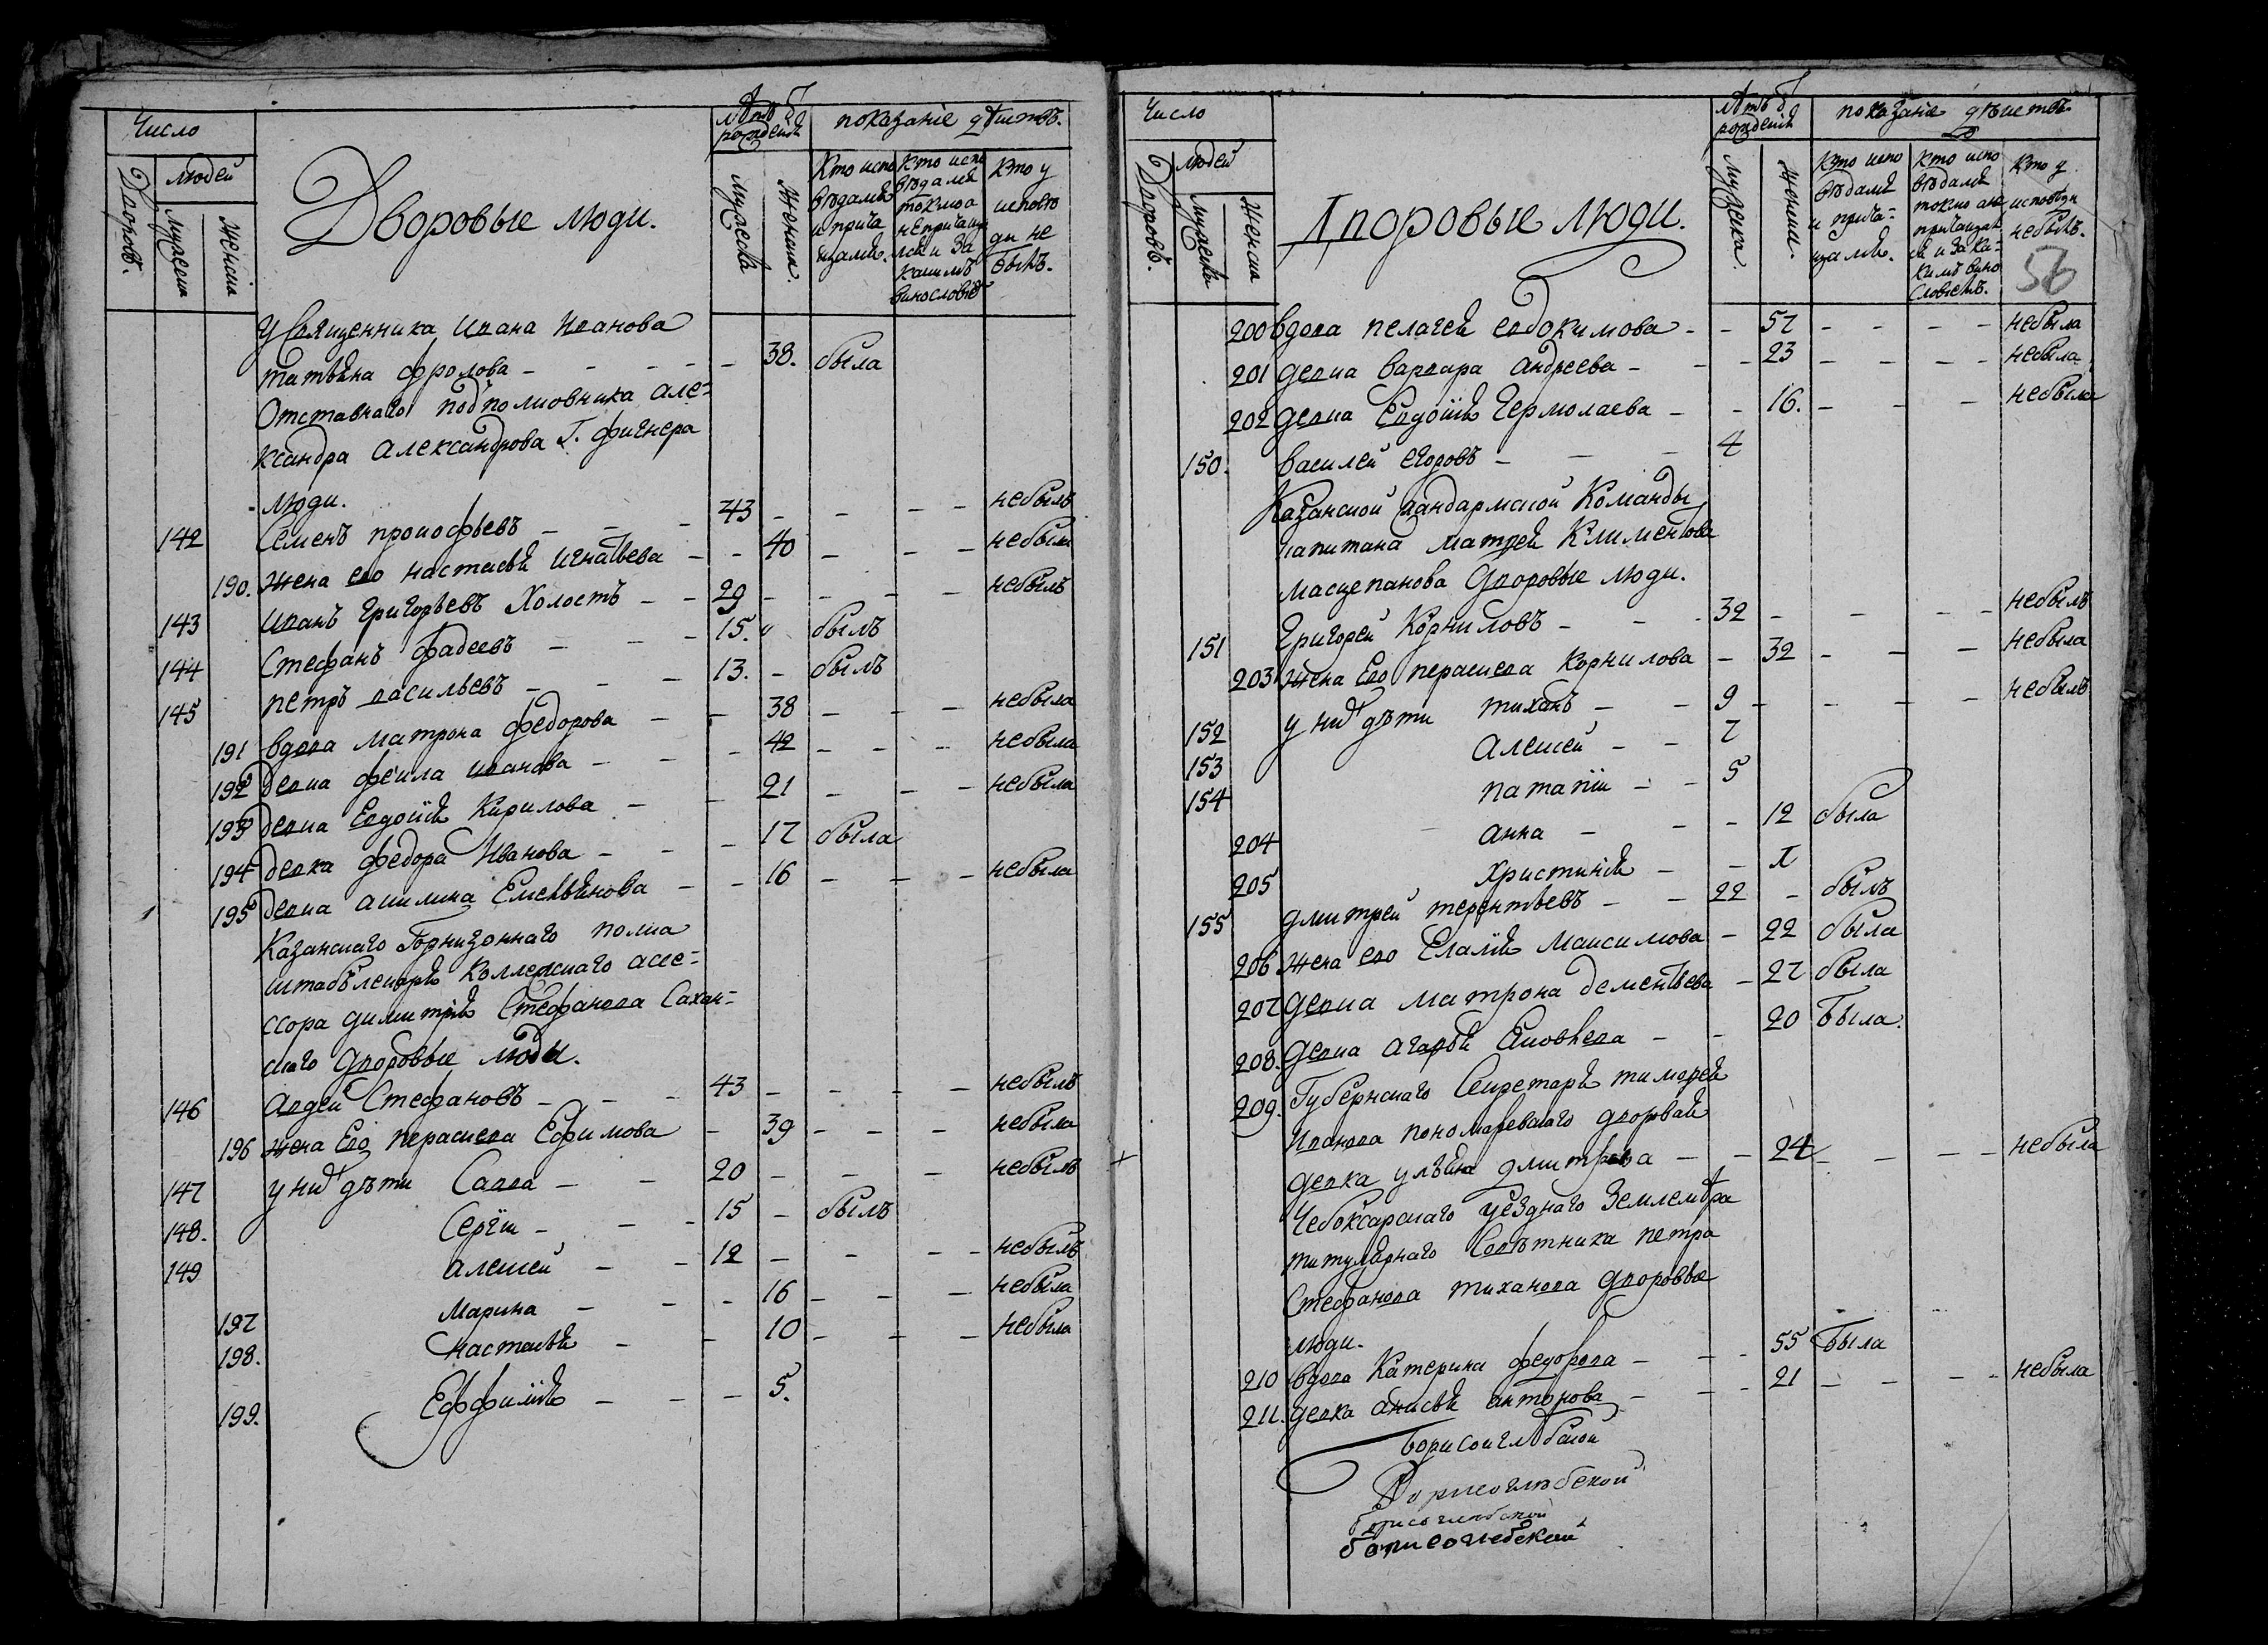 Число
Лѣтъ ѿ рожденія
показаніе дѣйствъ.
Дворовъ.
людей
Мужеска
Женска
Дворовые люди.
мужеска
женска.
Кто испо вѣдалис и прича щалис.
Кто испо вѣдался токмо а не причащал ся и за какимъ винословіе
Кто у исповѣ ди не былъ.
У Священника Ивана Иванова
татьяна фролова - - - - - 38. была
Отставнаго подполковника але=
ксандра александрова Г. фигнера
люди.
142 Семенъ прокофьевъ - - - 43 - - - - небылъ
190. жена его настасья игнатьева - - 40 - - - небыла
143 иванъ григорьевъ Холостъ - - 29 - - - - небылъ
144 Стефанъ фадеевъ - - - 15. былъ
145 петръ васильевъ - - - 13. - былъ
191 вдова матрона федорова - - 38 - - - небыла
192 девка фекла иванова - - - 42 - - - небыла
193 девка Евдокія Кирилова - - 21 - - - небыла
194 девка федора Иванова - - - 17 была
195 девка акилина Емельянова - - 16 - - - небыла
Казанскаго Горнизоннаго полка
штабълекаря Коллежскаго ассе=
ссора димитрія Стефанова Сахан=
скаго дворовые люди.
146 авдей Стефановъ - - - 43 - - - - небылъ
196 жена Его параскева Ефимова - 39 - - - небыла
147 у нихъ дѣти Савва - - 20 - - - небылъ
148. Сергій - - - 15 - былъ
149 алексей - - 12 - - - - небылъ
197 Марина - - - 16 - - - небыла
198. настасья - - 10 - - - небыла
199. Еффимія - - - 5.
Число
Лѣтъ ѿ рожденія
показаніе дѣйствъ.
Дворовъ.
людей
мужеска
женска
Дворовые люди.
мужеска.
женска.
Кто испо вѣдалис и прича= щалис.
Кто испо вѣдалис токмо а не причащал ся и за ка= кимъ вино словіемъ.
Кто у исповѣди небылъ.
56
200 вдова пелагея евдокимова - - 57 - - - - небыла
201 девка варвара андреева - - 23 - - - - небыла
202 девка Евдокія Гермолаева - - 16. - - - небыла
150. василей егоровъ - - - 4
Казанской жандармской Команды
капитана матвея Климентова
масцепанова дворовые люди.
151 Григорей Корниловъ - - - 32 - - - - небылъ
203 жена Его параскева Корнилова - 32 - - - небыла
152 у нихъ дѣти тиханъ - - 9 - - - небылъ
153 алексей - - 7
154 патапій - - 5
204 анна - - - 12 была
205 христинія - - 1
155 дмитрей терентьевъ - - 22 - былъ
206 жена его Евлалія Максимова - 22 была
207 девка матрона дементьева - 27 была
208. девка агафья Яковлева - - 20 была.
209. Губернскаго Секретаря тимофея
Иванова пономаревскаго дворовая
девка ульяна дмитріева - - 24 - - - небыла
Чебоксарскаго уезднаго Землемѣра
титулярнаго Советника петра
Стефанова тиханова дворовые
люди.
210 вдова Катерина федорова - - - 55 была
211. девка анисья антонова - - - 21 - - - - небыла
Борисоглѣбской
Борисоглѣбской
борисоглѣбской
борисоглебской